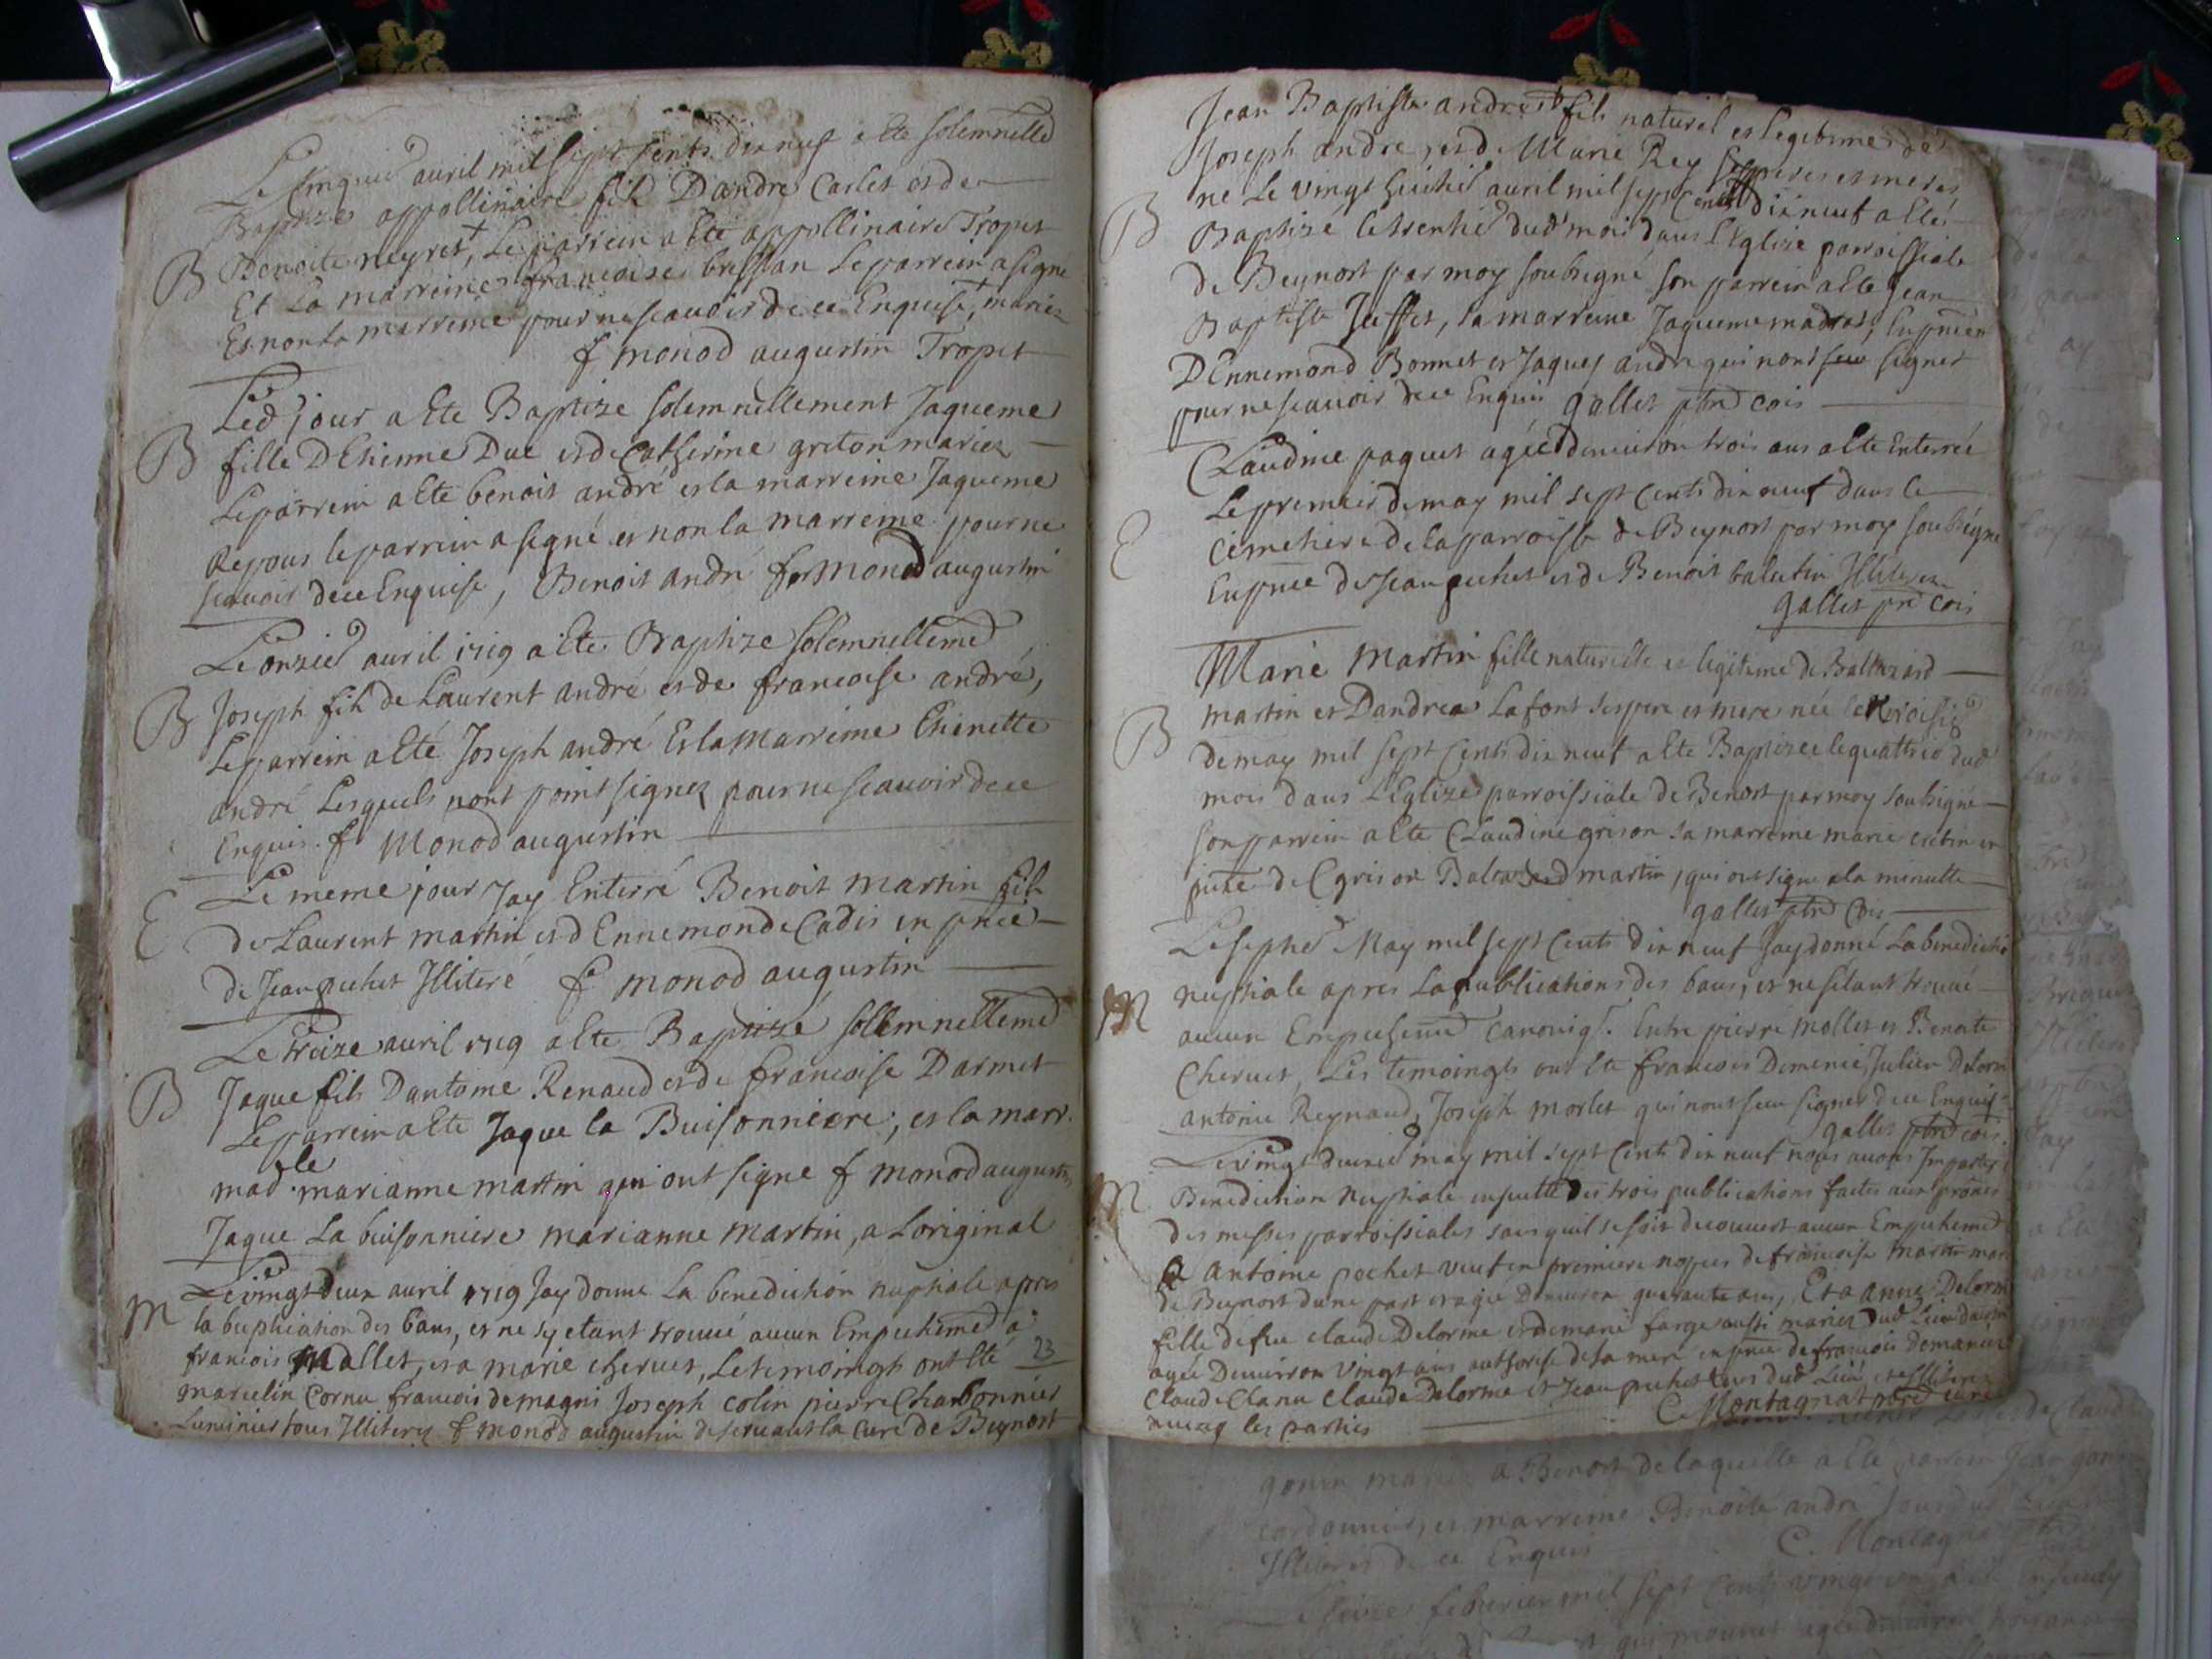 Le cinquie avril mil sept cents dix neuf a ete solemnelled
Baptize appollinaire fils Dandre Carlet et de
B
Benoite neyret, Le parrein a ete appollinaire Tropet
Et La marreine francoise bressan Le parrein a signé
Et non La marreine pour ne scavoir de ce Enquise, mariez
f monod augustin Tropet
Led jour a ete Baptize solemnellement Jaqueme
B
fille DEtienne Duc et de Catherine greton mariez
Le parrein a ete benoit andré et la marreine Jaqueme
Repous le parrein a signé et non la marreine pour ne
scavoir de ce Enquise, Benoit andré f monod augustin
Le onzied avril 1719 a ete Baptize solemnellemed
B
Joseph fils de Laurent andré et de francoise andré,
Le parrein a été Joseph andré Et la Marreine Etienette
andré Lesquels nont point signez pour ne scavoir de ce
Enquis. f Monod augustin
E
Le meme jour Jay Enterré Benoit martin fils
de Laurent martin et d Ennemonde Cadis en pnce
de Jean pechet Illiteré f monod augustin
Le treize avril 1719 a ete Baptizé sollemnellemed
B
Jaque fils Dantoine Renaud et de francoise Darmet
Le parrein a ete Jaque la Buisonniere, et la marr.
madle marianne martin qui ont signe f monod augustin
Jaque La buisonniere marianne martin, a Loriginal
M
Le vingt deux avril 1719 Jay donne La benediction nuptiale apres
la buplication des bans, et ne sy etant trouvé aucun Empechemed a
francois Mallet, et a marie chervet, Les temoingts ont été 23
marcelin Cornu francois demagni Joseph colin pierre Charbonnier
Luminier tous Illiterez f monod augustin deservant la cure de Beynost
Jean Baptiste andre fils naturel et legitime de
Joseph andre, et de Marie Rey ses peres et meres
ne Le vingt huitie avril mil sept Cents dix neuf a ete
B
Baptizé le trentie dud mois dans l'Eglize parroissiale
de Beynost par moy soubsigné son parrein a ete Jean
Baptiste Juffet, sa marreine Jaqueme madras, En pnce
DEnnemond Bonnet et Jaques andre qui nont sceu signer
pour ne scavoir de ce Enquis gallet ptre cois
Claudine paquet agée denviron trois ans a ete Enterrée
Le premier de may mil sept cents dix neuf dans le
E
Cimetiere de la parroisse de Beynost par moy soubsigne
En pnce de Jean pechet et de Benoit balutin Illiterez
gallet pre cois
Marie Martin fille naturelle et legitime de Baltazard
martin et Dandrea Lafont ses pere et mere née le troisie
B
de may mil sept Cents dix neuf a ete Baptizee le quattrie dud
mois dans L'Eglize parroissiale de Benost par moy soubsigné
son parrein a ete Claudine grison sa marreine marie cretin en
pnce de C grison Baltazard martin, qui ont signe a la minutte
gallet ptre Cois
Le septie May mil sept Cents dix neuf Jay donné La benedictio
M
nuptiale apres La publications des bans, et ne sétant trouvé
aucun Empechemed canoniq. Entre pierre mollet et Benoite
Chervet, Les temoingts ont ete francois Demenie Julien Delorm
antoine Reynaud, Joseph morlet qui nont sceu signer de ce Enquis
gallet ptre cois
Le vingt deuxie may mil sept Cents dix neuf nous avons Imparty
M
Benediction Nuptiale ensuitte des trois publications faites aux prônes
des messes parroissiales sans quil se soit decouvert aucun Empechemed
a antoine pochet veuf en premiere nopces de francoise martin mar
de Beynost dune part et agé Denviron quarante ans, Et a anne Delorm
fille de feu claude Delorme et de marie farge aussi mariez dud Lieu dautre
agée Denviron Vingt ans authorise de sa mere en pnce de francois Demanier
Claude Chanu Claude Delorme et Jean pechet tous dud Lieu, et Illiterez
avecq les parties C. Montagnat ptre cure
gonin mariez a Benost de laquelle a ete parrein Jean gonin
cordonnier, et marreine Benoite andré
Illiterés de ce Enquis C. Montagnat
febvrier mil sept Cents vingt
qui mourut agé denviron